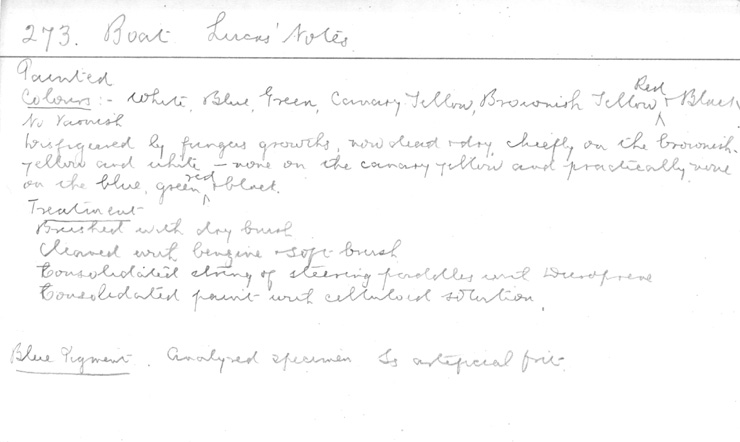 273. Boat Lucas' Notes
Painted
Colours:- White, Blue, Green, Canary Yellow, Brownish Yellow Red & Black
No Varnish
Disfigured by fungus growths, now dead & dry, chiefly on the brownish-
yellow and white – none on the canary yellow and practically none
on the blue, green red & black.
Treatment
Brushed with dry brush
Cleaned with benzine & soft brush
Consolidated string of steering paddles with Duroprene
Consolidated paint with celluloid solution.
Blue Pigment. Analysed specimen Is artificial frit.